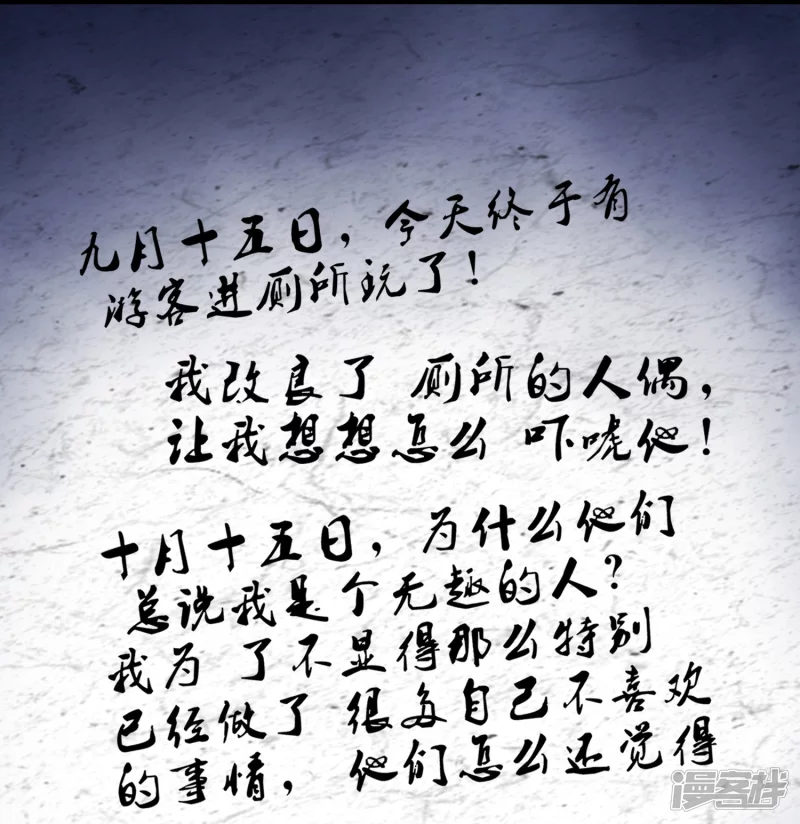 九月十五日，今天终于有
游客进厕所玩了！
我改良了 厕所的人偶，
让我想想怎么 吓唬他！
十月十五日，为什么他们
总说我是个无趣的人？
我为 了不显得那么特别
已经做了 很多自己不喜欢
的事情， 他们怎么还觉得
漫客栈